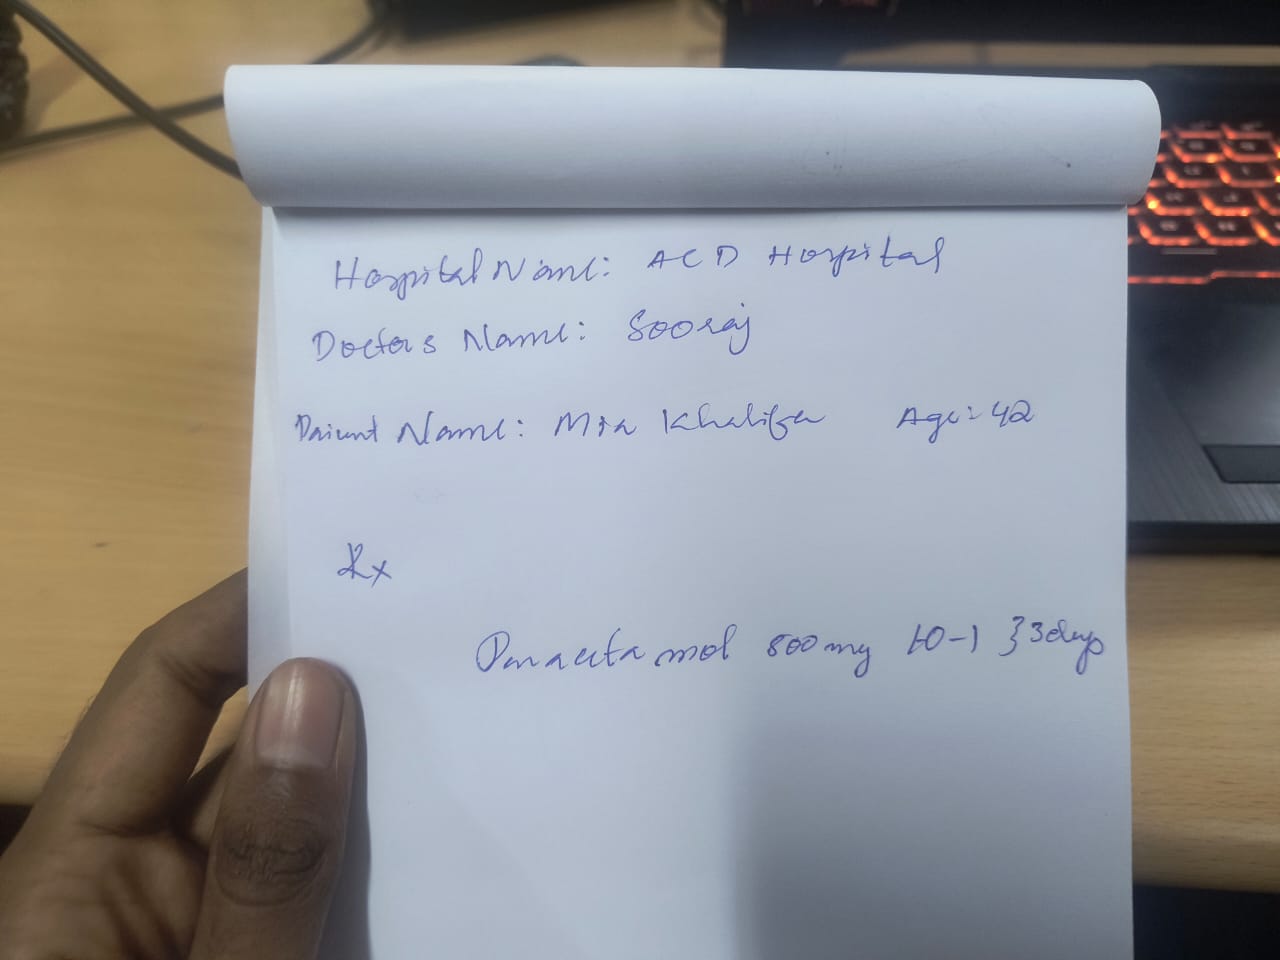 Hospital Name: ACD Hospital
Doctors Name: Sooraj
Paient Name: Mia Khalifa Age: 42
Rx
Paracetamol 500 mg 1-0-1 } 3 days